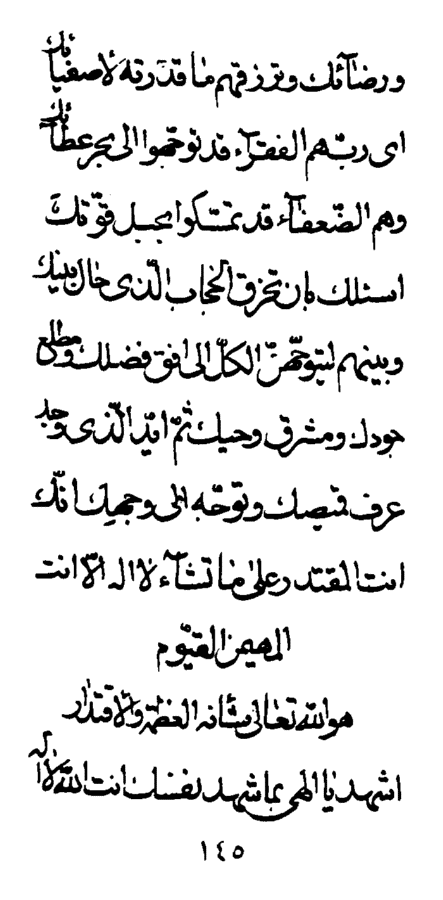 ورضآئك وترزقهم ما قدّرته لاصفيائك
اى ربّ هم الفقرآء قد توجّهوا الى بحر عطآئك
وهم الضّعفآء قد تمسّكوا بحبل قوّتك
اسئلك بان تخرق الحجاب الّذى حال بينك
وبينهم ليتوجّهنّ الكلّ الى افق فضلك ومطلع
جودك ومشرق وحيك ثمّ ايّد الّذى وجد
عرف قميصك وتوجّه الى وجهك انّك
انت المقتدر على ما تشآء لا اله الّا انت
المهيمن القيّوم
هو الله تعالى شانه العظمة والاقتدار
اشهد يا الهى بما شهد نفسك انت الله لا اله
١٤٥